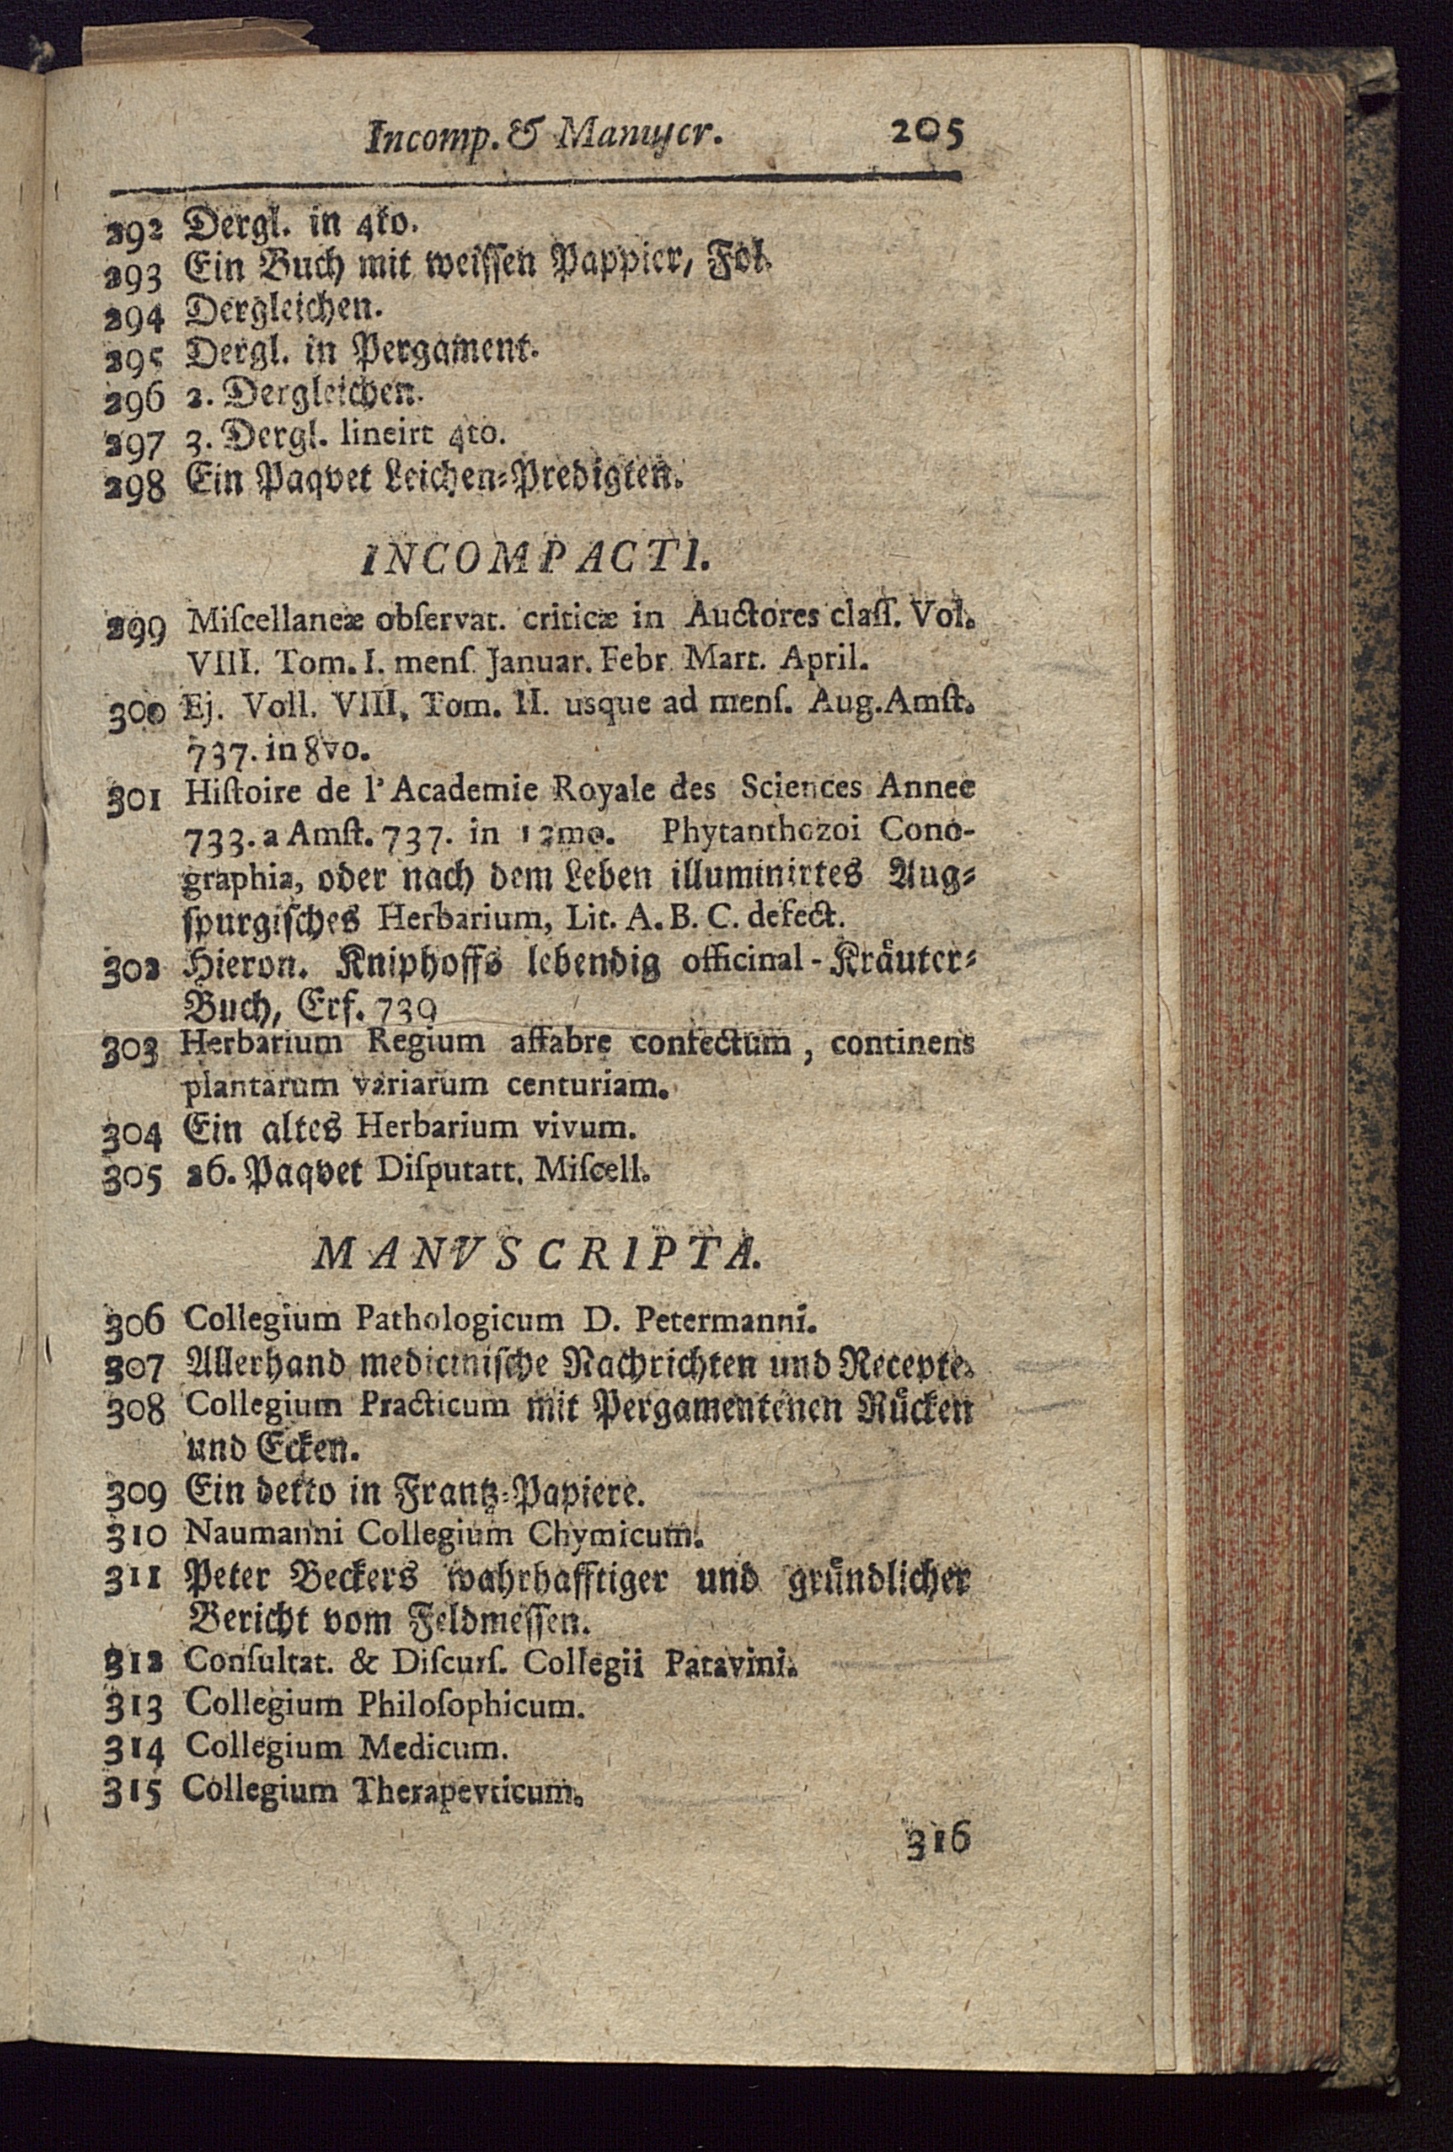 Incomp. & Manuſcr. 205
292 Dergl. in 4to.
293 Ein Buch mit weiſſen Pappier, Fol.
294 Dergleichen.
295 Dergl. in Pergament.
296 2. Dergleichen.
297 3. Dergl. lineirt 4to.
298 Ein Paqvet Leichen-Predigten.
INCOMPACTI.
299 Miſcellaneæ obſervat. criticæ in Auctores claſſ. Vol.
VIII. Tom. I. menſ. Januar. Febr. Mart. April.
300 Ej. Voll. VIII. Tom. II. usque ad menſ. Aug. Amſt.
737. in 8vo.
301 Hiſtoire de l'Academie Royale des Sciences Annee
733. a Amſt. 737. in 12mo. Phytanthozoi Cono-
graphia, oder nach dem Leben illuminirtes Aug-
ſpurgiſches Herbarium, Lit. A. B. C. defect.
302 Hieron. Kniphoffs lebendig officinal-Kräuter-
Buch, Erf. 739
303 Herbarium Regium affabre confectum, continens
plantarum variarum centuriam.
304 Ein altes Herbarium vivum.
305 26. Paqvet Diſputatt. Miſcell.
MANVSCRIPTA.
306 Collegium Pathologicum D. Petermanni.
307 Allerhand mediciniſche Nachrichten und Recepte.
308 Collegium Practicum mit Pergamentenen Rücken
und Ecken.
309 Ein detto in Frantz-Papiere.
310 Naumanni Collegium Chymicum.
311 Peter Beckers wahrhafftiger und gründlicher
Bericht vom Feldmeſſen.
312 Conſultat. & Diſcurſ. Collegii Patavini.
313 Collegium Philoſophicum.
314 Collegium Medicum.
315 Collegium Therapevticum.
316